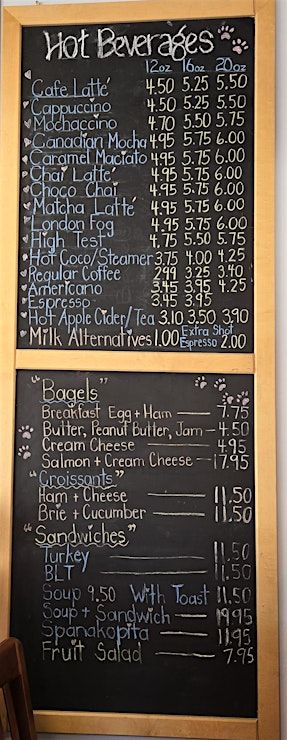 Hot Beverages
12oz 16oz 20oz
Cafe Latté 4.50 5.25 5.50
Cappuccino 4.50 5.25 5.50
Mochaccino 4.70 5.50 5.75
Canadian Mocha 4.95 5.75 6.00
Caramel Maciato 4.95 5.75 6.00
Chai Latté 4.95 5.75 6.00
Choco Chai 4.95 5.75 6.00
Matcha Latté 4.95 5.75 6.00
London Fog 4.95 5.75 6.00
High Test 4.75 5.50 5.75
Hot Coco/Steamer 3.75 4.00 4.25
Regular Coffee 2.99 3.25 3.40
Americano 3.45 3.95 4.25
Espresso 3.45 3.95
Hot Apple Cider/Tea 3.10 3.50 3.90
Milk Alternatives 1.00 Extra Shot Espresso 2.00
"Bagels"
Breakfast Egg + Ham — 7.75
Butter, Peanut Butter, Jam - 4.50
Cream Cheese — 4.95
Salmon + Cream Cheese - 17.95
"Croissants"
Ham + Cheese — 11.50
Brie + Cucumber — 11.50
"Sandwiches"
Turkey — 11.50
BLT — 11.50
Soup 9.50 With Toast 11.50
Soup + Sandwich — 19.95
Spanakopita — 11.95
Fruit Salad — 7.95